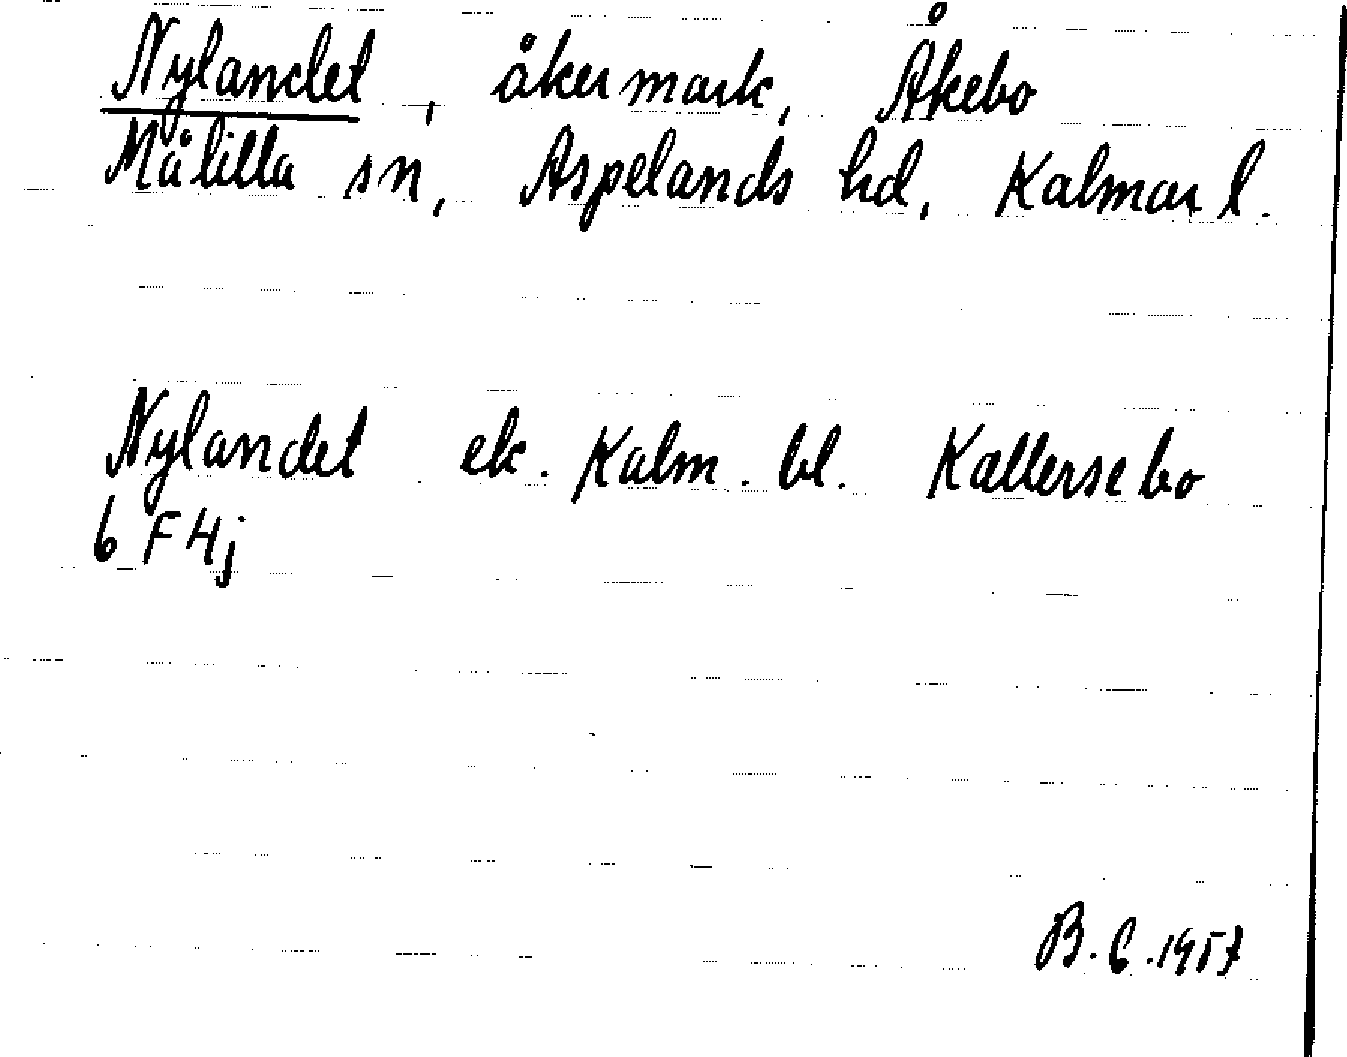 Nylandet, åkermark, Åkebo
Målilla sn, Aspelands hd, Kalmar l.
Nylandet ek. Kalm. bl. Kallersebo
6 F 4j
B. C. 1957